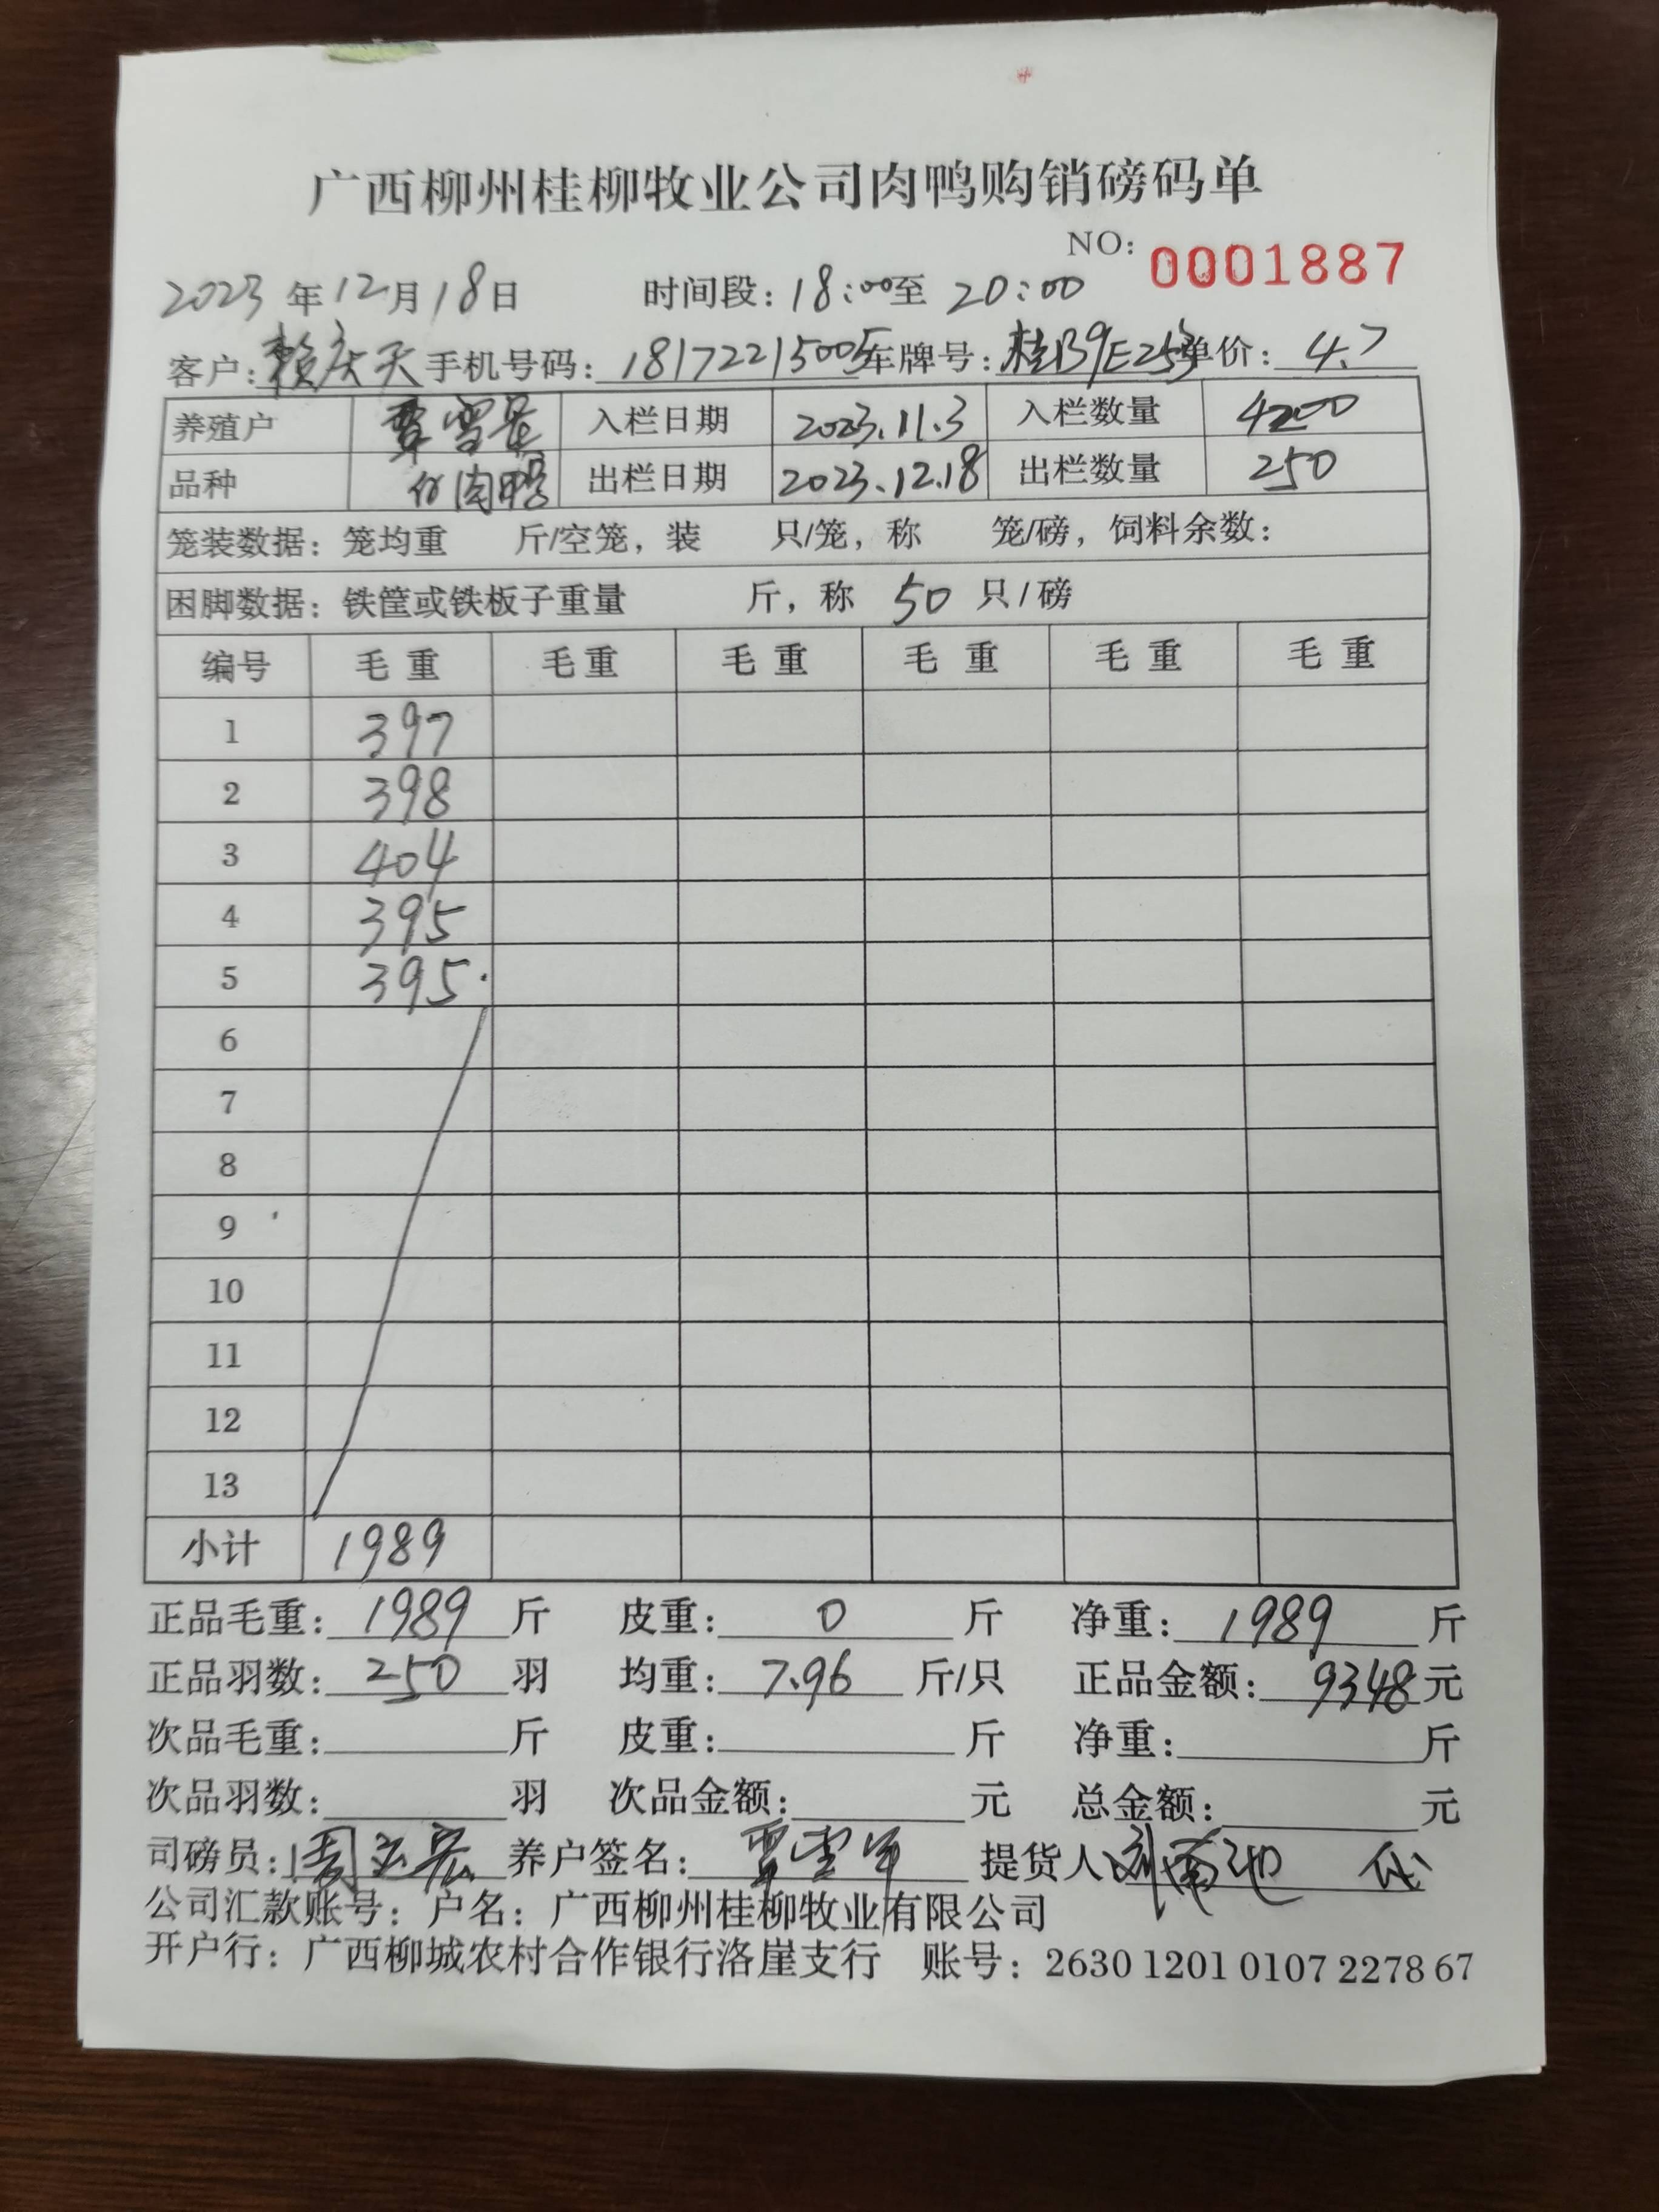 广西柳州桂柳牧业公司肉鸭购销磅码单
NO: 0001887
2023 年 12 月 18 日 时间段: 18:00 至 20:00
客户: 赖庆天 手机号码: 18172215005 车牌号: 桂B9E253 单价: 4.7
养殖户 覃雪 入栏日期 2023.11.3 入栏数量 4200
品种 肉鸭 出栏日期 2023.12.18 出栏数量 250
笼装数据: 笼均重 斤/空笼, 装 只/笼, 称 笼/磅, 饲料余数:
困脚数据: 铁筐或铁板子重量 斤, 称 50 只/磅
编号 毛重 毛重 毛重 毛重 毛重 毛重
1 397
2 398
3 404
4 395
5 395
6
7
8
9
10
11
12
13
小计 1989
正品毛重: 1989 斤 皮重: 0 斤 净重: 1989 斤
正品羽数: 250 羽 均重: 7.96 斤/只 正品金额: 9348 元
次品毛重: 斤 皮重: 斤 净重: 斤
次品羽数: 羽 次品金额: 元 总金额: 元
司磅员: 周 养户签名: 覃雪 提货人 代
公司汇款账号: 户名: 广西柳州桂柳牧业有限公司
开户行: 广西柳城农村合作银行洛崖支行 账号: 2630 1201 0107 2278 67